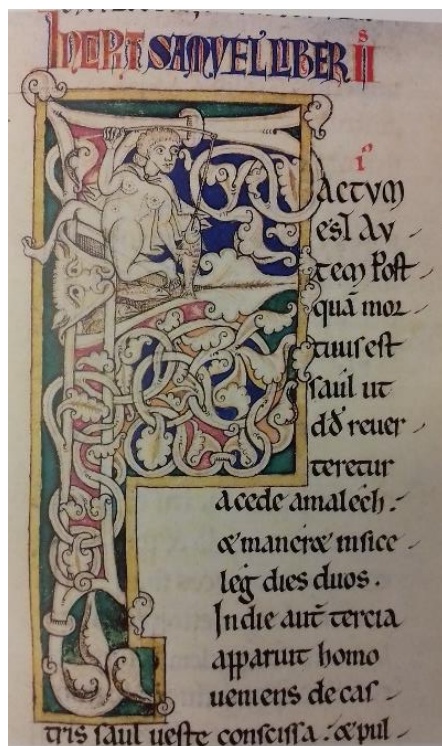 INCIPIT SAMVEL LIBER II
s
i°
F
ACTVM
est AV
tem post
quā mor
tuus est
saul ut
dd rever
teretur
a cede amalech .
& maner& in sice
leg dies duos .
In die aut tercia
apparuit homo
veniens de cas
tris saul veste conscissa . & pul